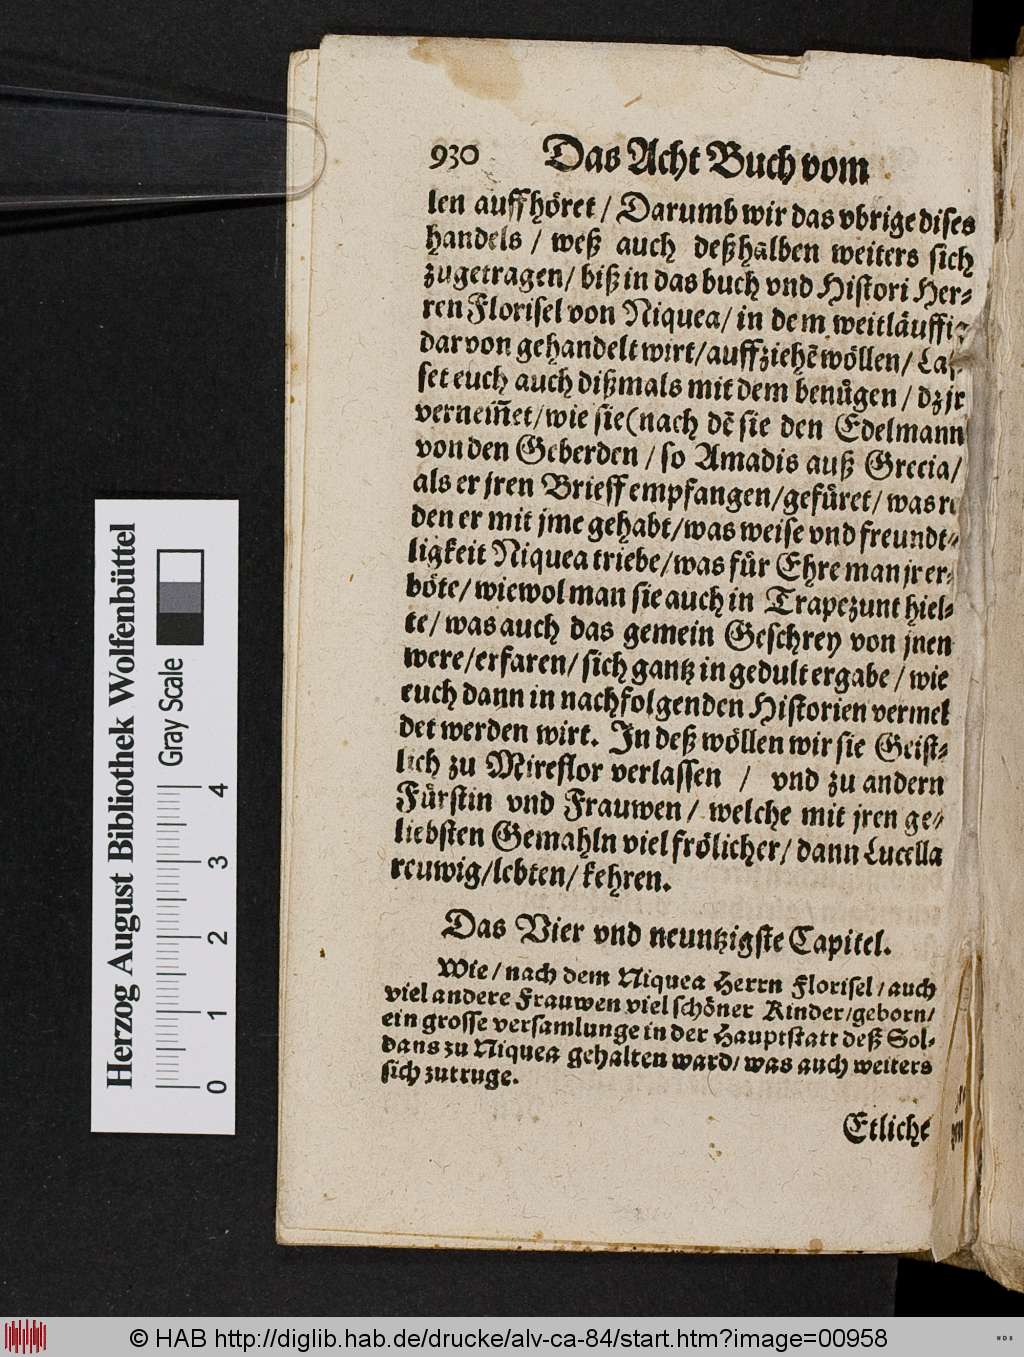 930 Das Acht Buch vom
len auffhöret / Darumb wir das vbrige dises
handels / weß auch deßhalben weiters sich
zugetragen / biß in das buch vnd Histori Her-
ren Florisel von Niquea / in dem weitläuffig
darvon gehandelt wirt / auffziehē wöllen / Las-
set euch auch dißmals mit dem benügen / dz jr
vernem̃et / wie sie (nach dē sie den Edelmann
von den Geberden / so Amadis auß Grecia /
als er jren Brieff empfangen / gefüret / was re
den er mit jme gehabt / was weise vnd freundt-
ligkeit Niquea triebe / was für Ehre man jr er-
böte / wiewol man sie auch in Trapezunt hiel-
te / was auch das gemein Geschrey von jnen
were / erfaren / sich gantz in gedult ergabe / wie
euch dann in nachfolgenden Historien vermel
det werden wirt. In deß wöllen wir sie Geist-
lich zu Mireflor verlassen / vnd zu andern
Fürstin vnd Frauwen / welche mit jren ge-
liebsten Gemahln viel frölicher / dann Lucella
reuwig / lebten / kehren.
Das Vier vnd neuntzigste Capitel.
Wie / nach dem Niquea Herrn Florisel / auch
viel andere Frauwen viel schöner Kinder / geborn /
ein grosse versamlunge in der Hauptstatt deß Sol-
dans zu Niquea gehalten ward / was auch weiters
sich zutruge.
Etliche
Herzog August Bibliothek Wolfenbüttel
Gray Scale
0 1 2 3 4
© HAB http://diglib.hab.de/drucke/alv-ca-84/start.htm?image=00958